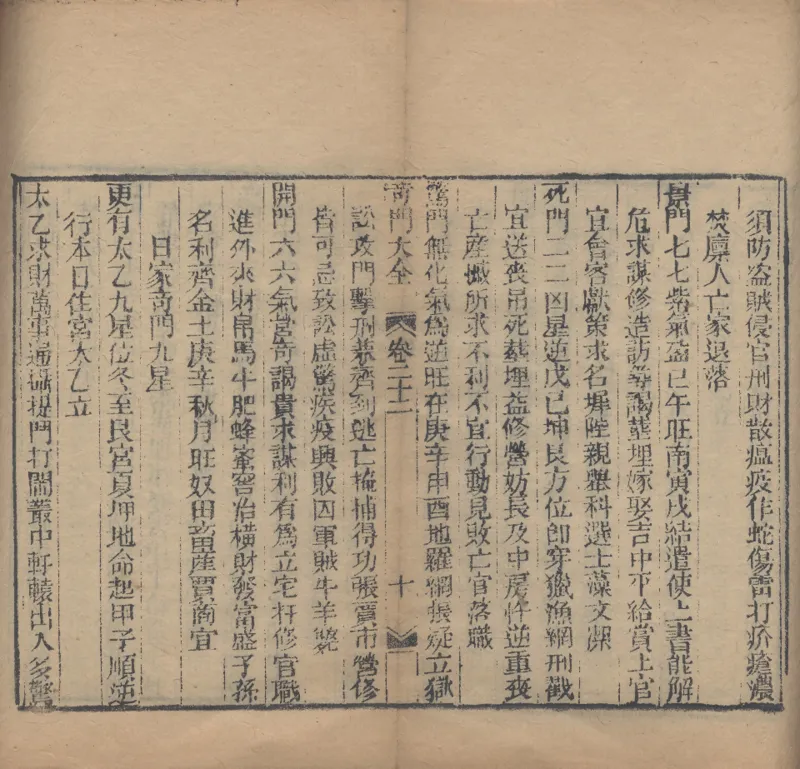 須防盗賊侵官刑財散瘟疫作蛇傷雷打疥瘡濃
焚廪人亡家退落
景門七七紫氣盈己午旺南寅戌結遣使上書能解
危求謀修造訪尋謁葬埋嫁娶吉中下給賞上官
宜會客獻策求名墀陛親懇科選士藻文深
死門二二凶星逆戊己坤艮方位卽穿獵漁網刑戮
宜送喪吊死葬埋益修營妨長及中房忤逆重喪
亡産慽所求不利不宜行動見敗亡官落職
驚門無化氣爲逆旺在庚辛申酉地羅網張疑立獄
奇門大全 卷二十二 十
訟攻門擊刑葬齊到逃亡掩捕得功張賈市營修
皆可忌致訟虛驚疾疫興敗囚軍賊牛羊斃
開門六六氣営奇謁貴求謀利有爲立宅扦修官職
進外來財帛馬牛肥蜂蜜窖冶橫財發富盛子孫
名利齊金土庚辛秋月旺奴田畜産賈商宜
日家奇門九星
更有太乙九星位冬至艮宮夏坤地命起甲子順逆
行本日住宮太乙立
太乙求財萬事通攝提門打鬧叢中軒轅出入多驚